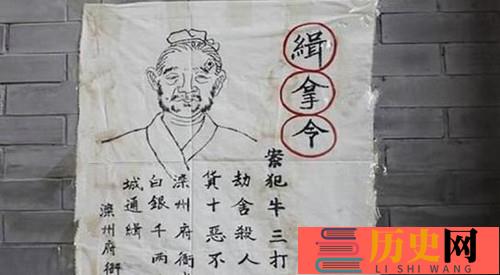 緝拿令
案犯牛三打
劫舍殺人
貨十惡不
滦州府衙
白銀千两
城通緝
滦州府衙
历史网
LI SHI WANG